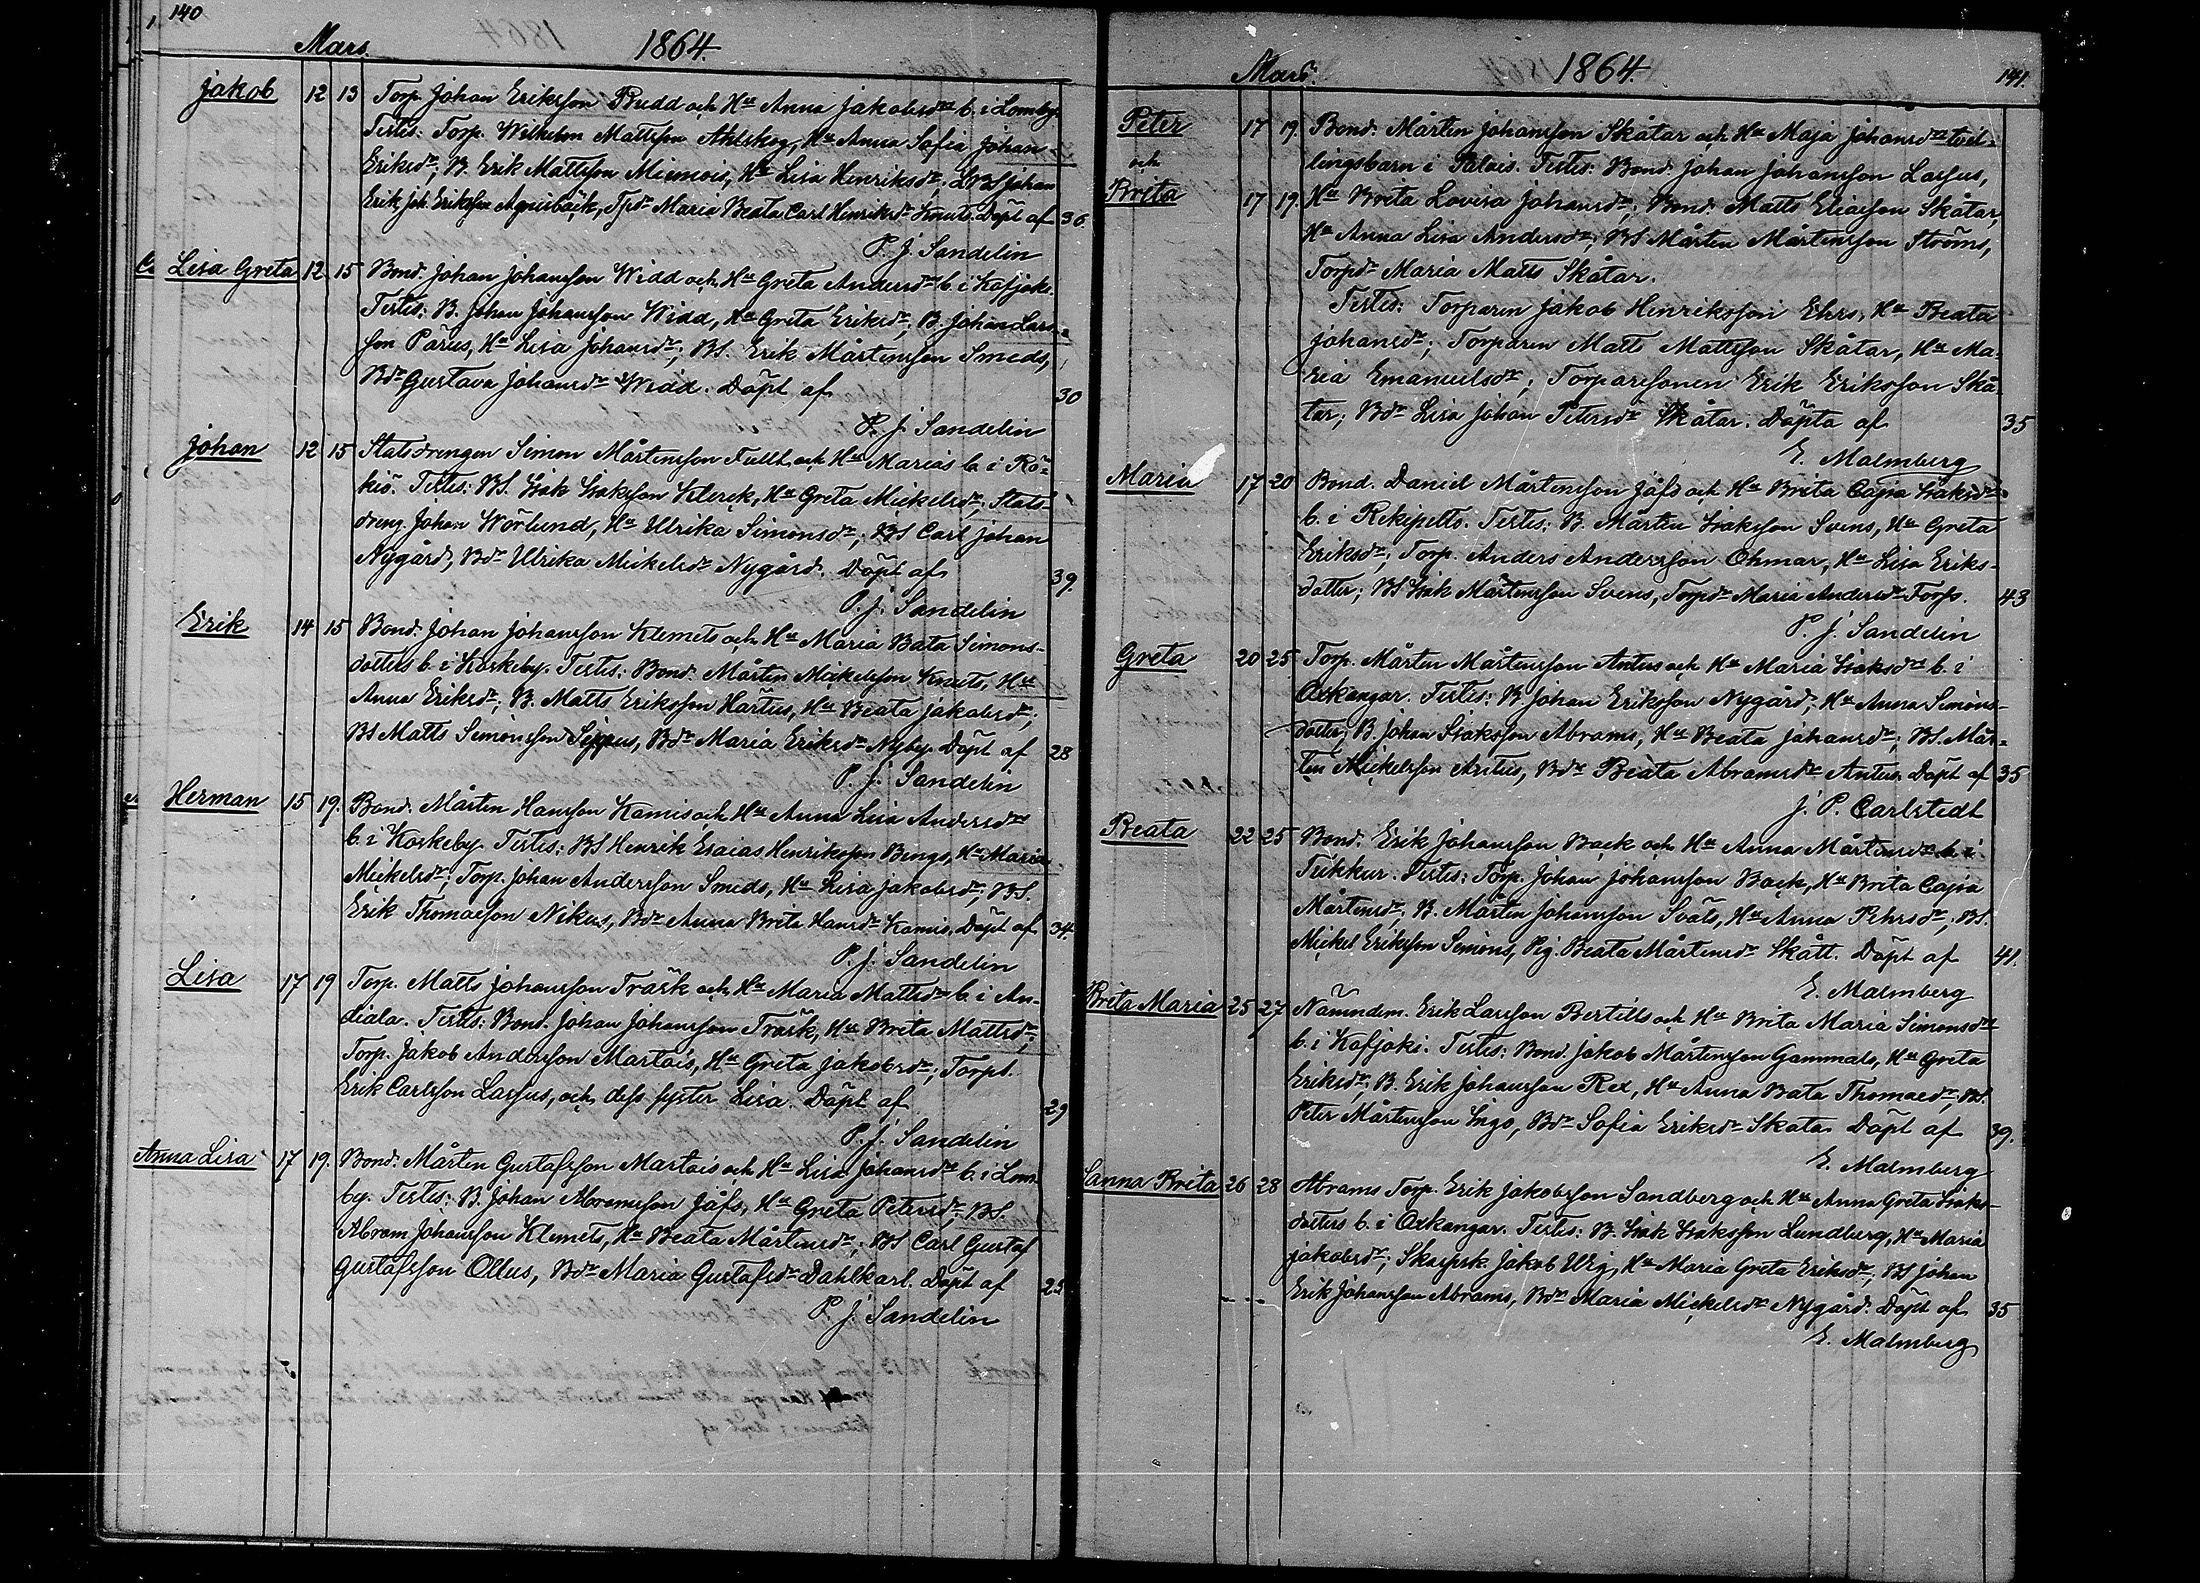 140
Mars. 1864.
Jakob 12 13 Torp. Johan Eriksson Rudd och Hu Anna Jakobsdrs b. i Lomby.
Testes: Torp. Wilhelm Mattsson Ahlskog, Hu Anna Sofia Johan
Eriksdr; B. Erik Mattsson Miemois, Hu Lisa Henriksdr. BS Johan
Erik Joh. Eriksson Agnisbäck, Tpdr Maria Beata Carl Henriksdr Knuts. Döpt af 36.
P. J. Sandelin
Lisa Greta 12 15 Bond. Johan Johansson Widd och Hu Greta Andersdrs b. i Kafjoki.
Testes: B. Johan Johansson Widd, Hu Greta Eriksdr; B. Johan Lars-
son Pärus, Hu Lisa Johansdr; BS. Erik Mårtensson Smeds,
Bdr Gustava Johansdr Widd. Döpt af 30
P. J. Sandelin
Johan 12 15 Statsdrengen Simon Mårtensson Fullt och Hu Marias b. i Rö-
kiö. Testes: BS. Isak Isaksson Klerck, Hu Greta Mickelsdr, Stats-
dreng Johan Wörlund, Hu Ulrika Simonsdr; BS Carl Johan
Nygård, Bdr Ulrika Mickelsdr Nygård. Döpt af 39.
P. J. Sandelin
Erik 14 15 Bond. Johan Johansson Klemets och Hu Maria Bata Simons-
dotters b. i Koskeby. Testes: Bond. Mårten Mickelsson Knuts, Hu
Anna Eriksdr; B. Matts Eriksson Härtus, Hu Beata Jakobsdr;
BS Matts Simonsson Sippus, Bdr Maria Eriksdr Nyby. Döpt af 28
P. J. Sandelin
Herman 15 19. Bond. Mårten Hansson Kamis och Hu Anna Lisa Andersdrs
b. i Koskeby. Testes: BS Henrik Esaias Henriksson Bengs, Hu Maria
Mickelsdr; Torp. Johan Andersson Smeds, Hu Lisa Jakobsdr; BS.
Erik Thomasson Nikus, Bdr Anna Brita Hansdr Kamis. Döpt af 34.
P. J. Sandelin
Lisa 17 19 Torp. Matts Johansson Träsk och Hu Maria Mattsdrs b. i An-
diala. Testes: Bond. Johan Johansson Träsk, Hu Brita Mattsdr;
Torp. Jakob Andersson Martois, Hu Greta Jakobsdr; Torps.
Erik Carlsson Lassus, och dess syster Lisa. Döpt af 29
P. J. Sandelin
Anna Lisa 17 19. Bond. Mårten Gustafsson Martois och Hu Lisa Johansdrs b. i Lom-
by. Testes: B. Johan Abramsson Jåfs, Hu Greta Petersdr; BS.
Abram Johansson Klemets, Hu Beata Mårtensdr; BS Carl Gustaf
Gustafsson Ollus, Bdr Maria Gustafsdr Dahlkarl. Döpt af 25
P. J. Sandelin
Mars. 1864. 141.
Peter 17 19. Bond. Mårten Johansson Skåtar och Hu Maja Johansdrs tvil-
och lingsbarn i Palois. Testes: Bond. Johan Johansson Lassus,
Brita 17 19. Hu Brita Lovisa Johansdr; Bond. Matts Eliasson Skåtar,
Hu Anna Lisa Andersdr; BS Mårten Mårtensson Ströms,
Torpdr Maria Matts Skåtar.
Testes: Torparen Jakob Henriksson Ehrs, Hu Beata
Johansdr; Torparen Matts Mattsson Skåtar, Hu Ma-
ria Emanuelsdr; Torparesonen Erik Eriksson Skå-
tar; Bdr Lisa Johan Petersdr Skåtar. Döpta af 35
E. Malmberg
Maria 17 20 Bond. Daniel Mårtensson Jåfs och Hu Brita Cajsa Isaksdrs
b. i Rekipelto. Testes: B. Mårten Isaksson Svens, Hu Greta
Eriksdr; Torp. Anders Andersson Öhmar, Hu Lisa Eriks-
dotter; BS Isak Mårtensson Svens, Torpdr Maria Andersdr Fors. 43
P. J. Sandelin
Greta 20 25 Torp. Mårten Mårtensson Antus och Hu Maria Isaksdrs b. i
Oxkangar. Testes: B. Johan Eriksson Nygård, Hu Anna Simons-
dotter, B. Johan Isaksson Abrams, Hu Beata Johansdr; BS. Mår-
ten Mickelsson Antus, Bdr Beata Abramsdr Antus. Döpt af 35
J. P. Carlstedt
Beata 22 25 Bond. Erik Johansson Back och Hu Anna Mårtensdrs b. i
Tukkur. Testes: Torp. Johan Johansson Back, Hu Brita Cajsa
Mårtensdr; B. Mårten Johansson Sväts, Hu Anna Pehrsdr, BS.
Mickel Eriksson Simons, Pig. Beata Mårtensdr Skått. Döpt af 41.
E. Malmberg
Brita Maria 25 27 Nämndem. Erik Larsson Bertills och Hu Brita Maria Simonsdrs
b. i Kafjoki. Testes: Bond. Jakob Mårtensson Gammals, Hu Greta
Eriksdr; B. Erik Johansson Rex, Hu Anna Bata Thomasdr; BS.
Peter Mårtensson Ingo, Bdr Sofia Eriksdr Skata. Döpt af 39.
E. Malmberg
Sanna Brita 26 28 Abrams Torp. Erik Jakobsson Sandberg och Hu Anna Greta Isaks-
dotters b. i Oxkangar. Testes: B. Isak Isaksson Lundberg, Hu Maria
Jakobsdr; Skarpsk Jakob Wig, Hu Maria Greta Eriksdr; BS Johan
Erik Johansson Abrams, Bdr Maria Mickelsdr Nygård. Döpt af 35
E. Malmberg